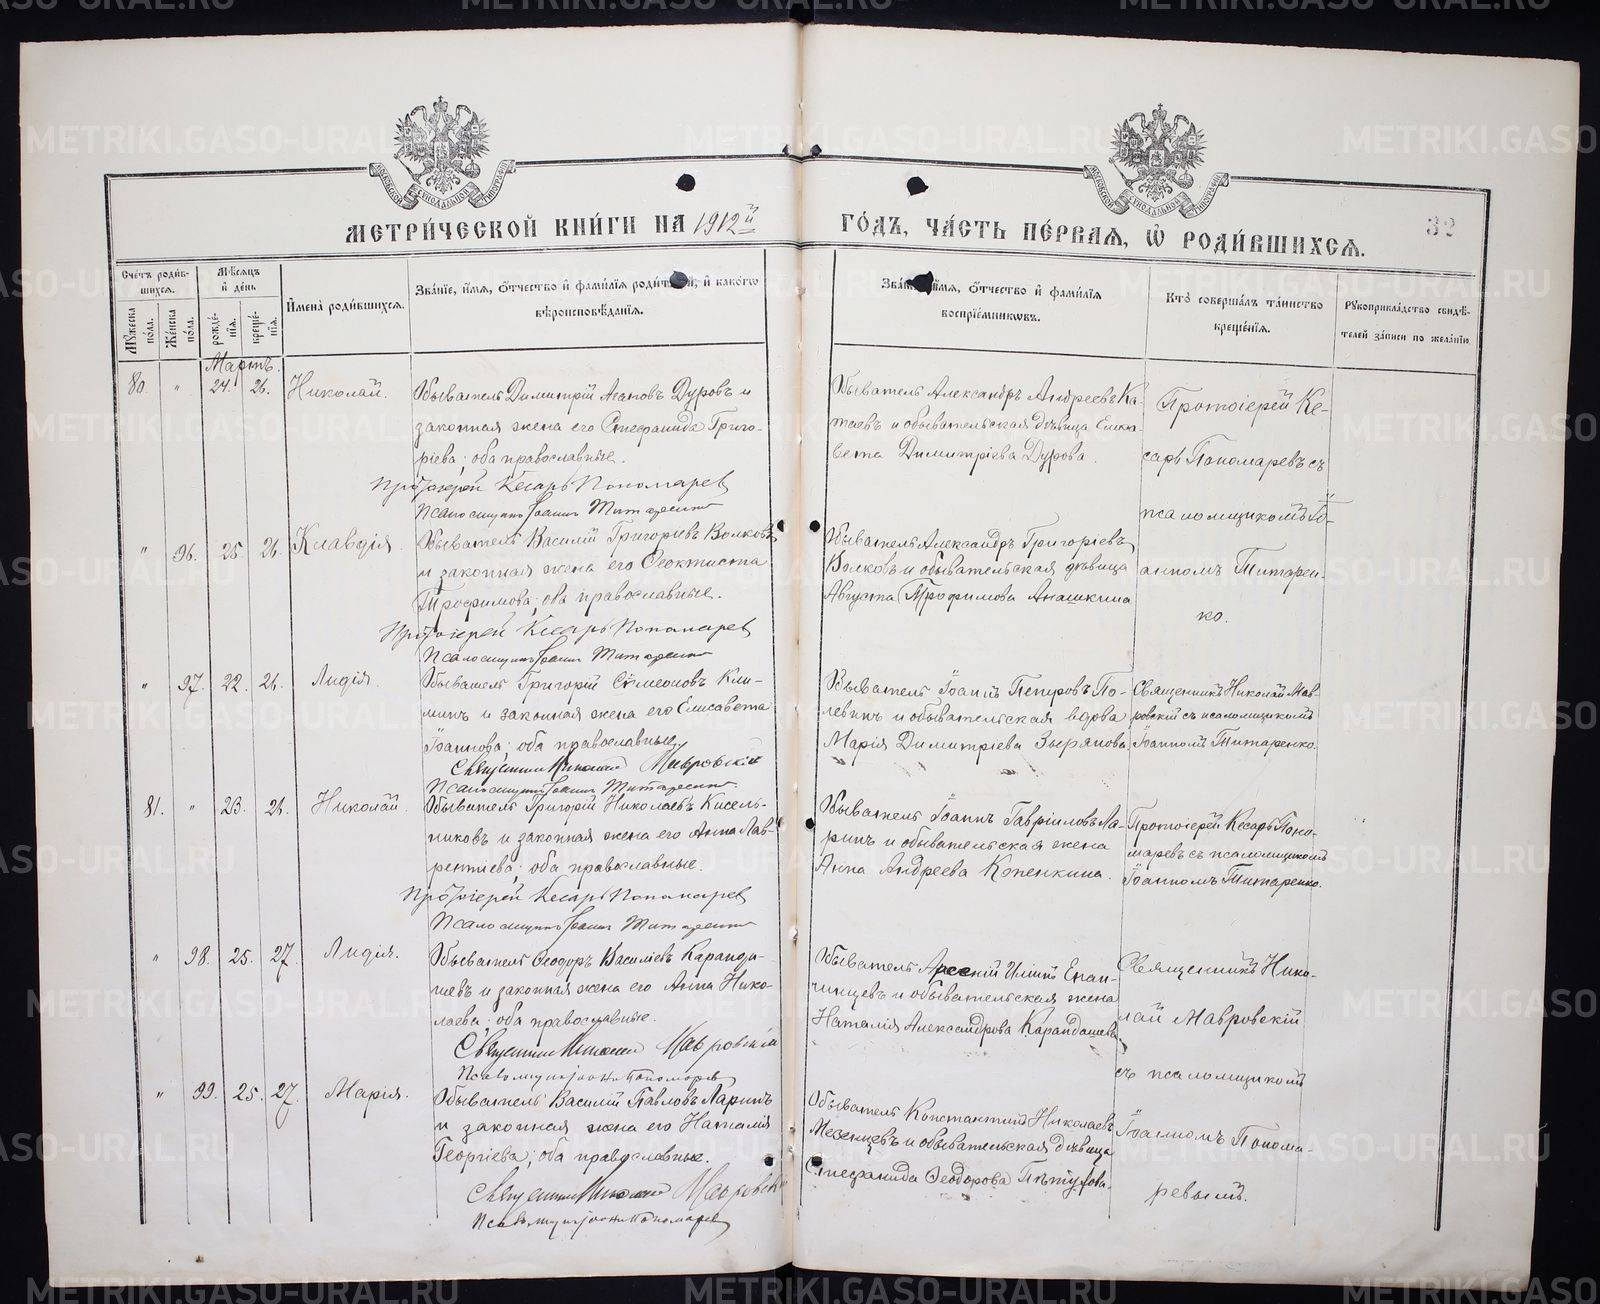 МЕТРИ́ЧЕСКОЙ КНИ́ГИ НА 1912й ГО́ДЪ, ЧА́СТЬ ПЕ́РВАЯ, Ѡ҆ РОДИ́ВШИХСЯ.
32
Сче́тъ роди́в-
шихся.
Мѣ́сяцъ
и҆ де́нь
Мꙋ́жеска по́ла.
Же́нска по́ла.
рожде́-
нїѧ.
креще́-
нїѧ.
И҆мена̀ роди́вшихсѧ.
Зва́нїе, и҆́мѧ, ѻ҆́тчество и҆ фамі́лїѧ роди́телей, и҆ како́гѡ
вѣроисповѣ́данїѧ.
Зва́нїе, и҆́мѧ, ѻ҆́тчество и҆ фамі́лїѧ
воспрїе́мникѡвъ.
Кто̀ соверша́лъ та́инство
креще́нїѧ.
Рꙋкоприкла́дство свидѣ́-
телей за́писи по жела́нїю
Мартъ.
80. " 24. 26. Николай.
Обыватель Димитрій Агаповъ Дуровъ и
законная жена его Стефанида Григо-
ріева; оба православные.
Протоіерей Кесарь Пономарев
Псаломщикъ Іоаннъ Титаренко
Обыватель Александръ Андреевъ Ка-
таевъ и обывательская дѣвица Елиза-
вета Димитріева Дурова.
Протоіерей Ке-
сарь Пономаревъ съ
псаломщикомъ Іо-
анномъ Титарен-
ко.
" 96. 25. 26. Клавдія.
Обыватель Василій Григорьевъ Волковъ
и законная жена его Феоктиста
Трофимова; оба православные.
Протоіерей Кесарь Пономарев
Псаломщикъ Іоаннъ Титаренко
Обыватель Александръ Григорьевъ
Волковъ и обывательская дѣвица
Августа Трофимова Анашкина
" 97. 22. 26. Лидія.
Обыватель Григорій Симеоновъ Кли-
минъ и законная жена его Елисавета
Іоаннова; оба православные.
Священникъ Николай Мавровскій
Псаломщикъ Іоаннъ Титаренко
Обыватель Іоаннъ Петровъ По-
левинъ и обывательская вдова
Марія Димитріева Зырянова
Священникъ Николай Мав-
ровскій съ псаломщикомъ
Іоанномъ Титаренко.
81. " 23. 26. Николай.
Обыватель Григорій Николаевъ Кисель-
никовъ и законная жена его Анна Лав-
рентіева; оба православные.
Протоіерей Кесарь Пономарев
Псаломщикъ Іоаннъ Титаренко
Обыватель Іоаннъ Гавріиловъ Ла-
ринъ и обывательская жена
Анна Андреева Копенкина.
Протоіерей Кесарь Поно-
маревъ съ псаломщикомъ
Іоанномъ Титаренко.
" 98. 25. 27. Лидія.
Обыватель Феодоръ Васильевъ Каранда-
шевъ и законная жена его Анна Нико-
лаева; оба православные.
Священникъ Николай Мавровскій
Псаломщикъ Іоаннъ Пономарев
Обыватель Арсеній Епан-
чинцевъ и обывательская жена
Наталія Александрова Карандашева
Священникъ Нико-
лай Мавровскій
съ псаломщикомъ
Іоанномъ Понома-
ревымъ.
" 99. 25. 27. Марія.
Обыватель Василій Павловъ Ларинъ
и законная жена его Наталія
Георгіева; оба православные.
Священникъ Николай Мавровскій
Псаломщикъ Іоаннъ Пономарев
Обыватель Константинъ Николаевъ
Мезенцевъ и обывательская дѣвица
Стефанида Феодорова Пѣтухова.
METRIKI.GASO-URAL.RU